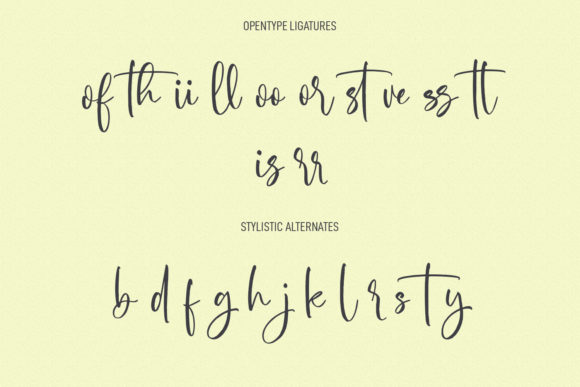 OPENTYPE LIGATURES
of th ii ll oo or st ve ss tt
is rr
STYLISTIC ALTERNATES
b d f g h j k l r s t y